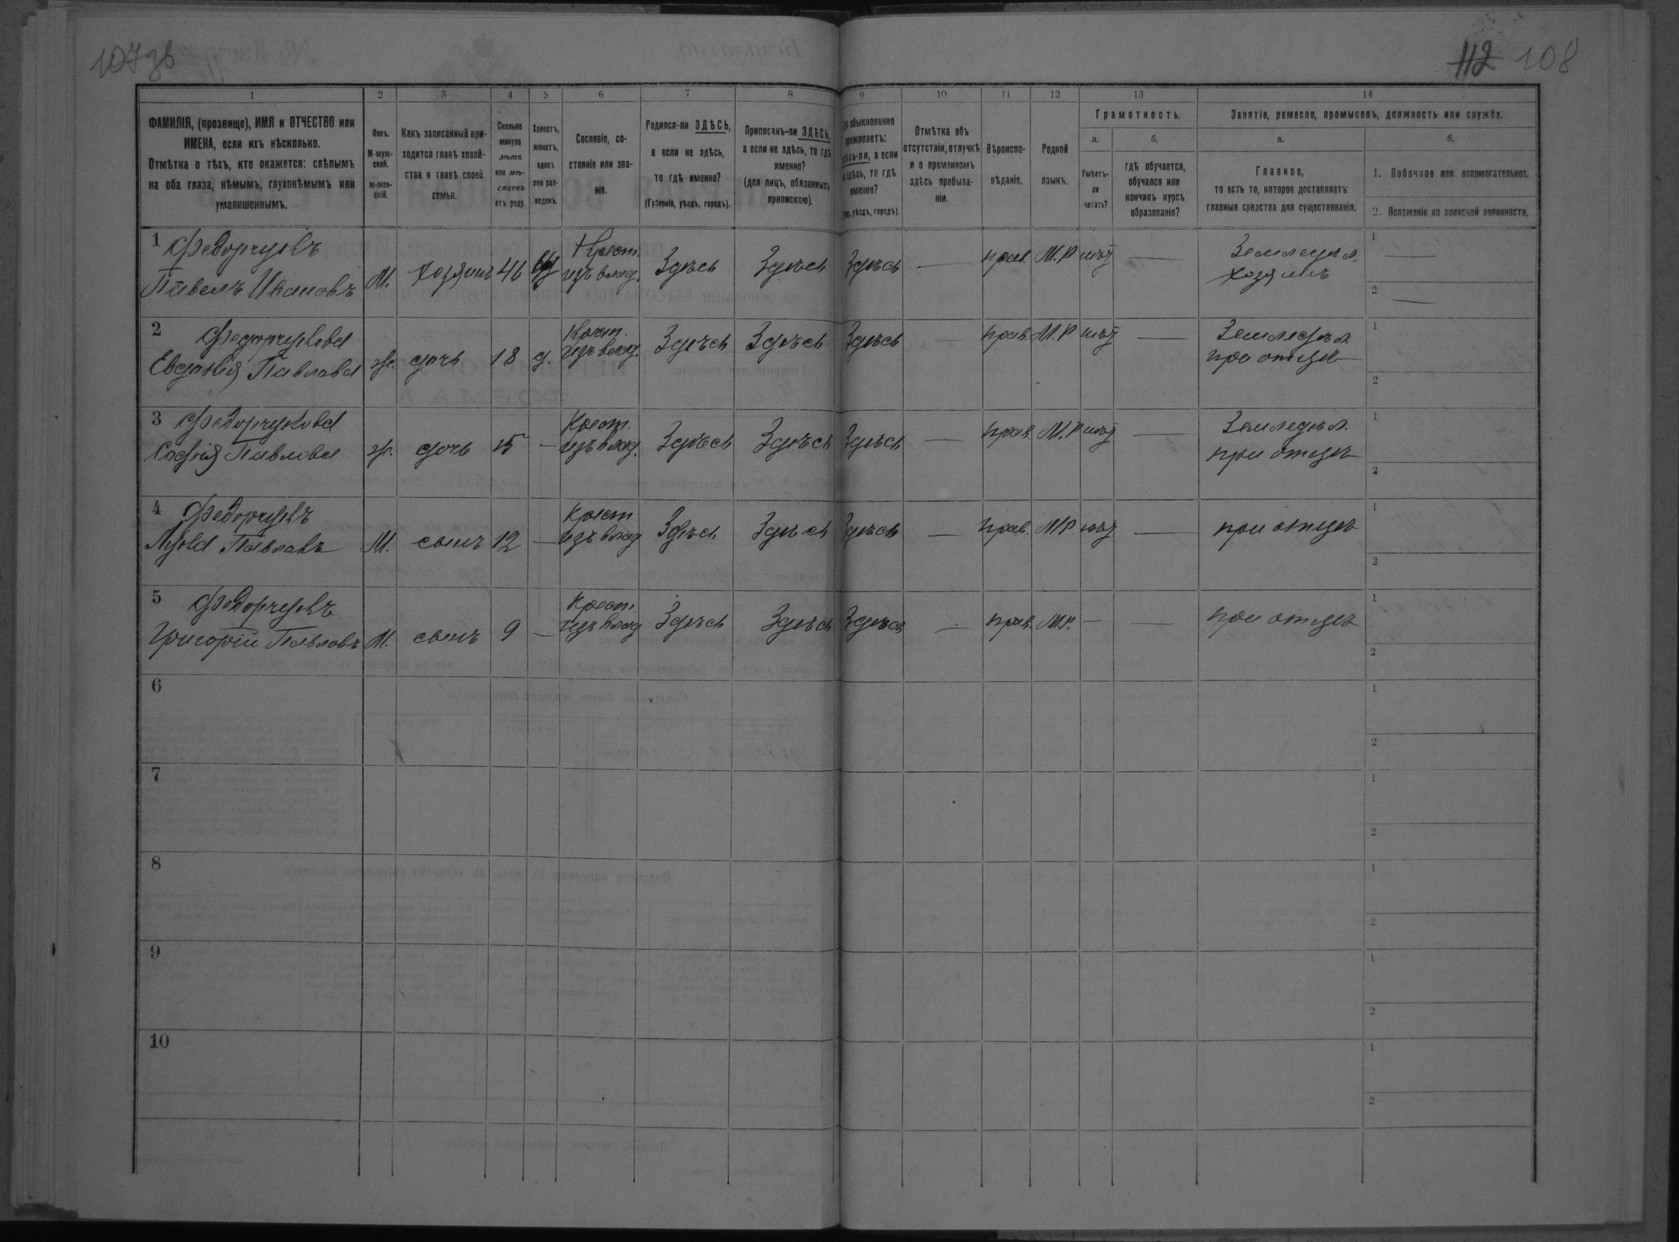 107зв
112 108
1 2 3 4 5 6 7 8 9 10 11 12 13 14
ФАМИЛІЯ, (прозвище), ИМЯ и ОТЧЕСТВО или
ИМЕНА, если ихъ нѣсколько.
Отмѣтка о тѣхъ, кто окажется: слѣпымъ
на оба глаза, нѣмымъ, глухонѣмымъ или
умалишеннымъ.
Полъ.
М-муж-
ской.
ж-жен-
скій.
Какъ записанный при-
ходится главѣ хозяй-
ства и главѣ своей
семьи.
Сколько
минуло
лѣтъ
или мѣ-
сяцевъ
отъ роду.
Холостъ,
женатъ,
вдовъ
или раз-
веденъ.
Сословіе, со-
стояніе или зва-
ніе.
Родился-ли ЗДѢСЬ,
а если не здѣсь,
то гдѣ именно?
(Губернія, уѣздъ, городъ).
Приписанъ-ли ЗДѢСЬ,
а если не здѣсь, то гдѣ
именно?
(для лицъ, обязанныхъ
припискою).
обыкновенно
проживаетъ:
здѣсь-ли, а если
не здѣсь, то гдѣ
именно?
уѣздъ, городъ).
Отмѣтка объ
отсутствіи, отлучкѣ
и о временномъ
здѣсь пребыва-
ніи.
Вѣроиспо-
вѣданіе.
Родной
языкъ.
Грамотность.
а.
Умѣетъ-
ли
читать?
б.
гдѣ обучается,
обучался или
кончилъ курсъ
образованія?
Занятіе, ремесло, промыселъ, должность или служба.
а.
Главное,
то есть то, которое доставляетъ
главныя средства для существованія.
б.
1. Побочное или вспомогательное.
2. Положеніе по воинской повинности.
1 Федорчуковъ
Павелъ Ивановъ М. хозяинъ 46
Крест.
изъ влад. Здѣсь Здѣсь Здѣсь — прав. М.Р нѣтъ —
Земледѣл.
хозяинъ
1 —
2 —
2 Федорчукова
Евдокія Павлова ж. дочь 18 д.
Крест.
изъ влад. Здѣсь Здѣсь Здѣсь — прав. М.Р нѣтъ —
Земледѣл.
при отцѣ
1
2
3 Федорчукова
Софія Павлова ж. дочь 15 —
Крест.
изъ влад. Здѣсь Здѣсь Здѣсь — прав. М.Р нѣтъ —
Земледѣл.
при отцѣ
1
2
4 Федорчуковъ
Лука Павловъ М. сынъ 12 —
Крест.
изъ влад Здѣсь Здѣсь Здѣсь — прав. М.Р нѣтъ —
при отцѣ
1
2
5 Федорчуковъ
Григорій Павловъ М. сынъ 9 —
Крест.
изъ влад Здѣсь Здѣсь Здѣсь — прав. М.Р. — —
при отцѣ
1
2
6
1
2
7
1
2
8
1
2
9
1
2
10
1
2